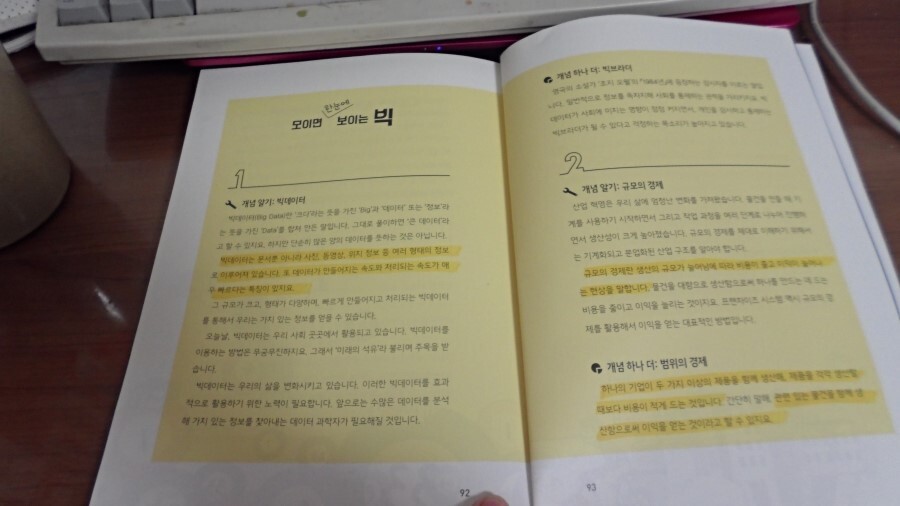 한눈에
모이면 보이는 빅
1
개념 알기: 빅데이터
빅데이터(Big Data)란 '크다'라는 뜻을 가진 'Big'과 '데이터' 또는 '정보'라
는 뜻을 가진 'Data'를 합쳐 만든 말입니다. 그대로 풀이하면 '큰 데이터'라
고 할 수 있지요. 하지만 단순히 많은 양의 데이터를 뜻하는 것은 아닙니다.
빅데이터는 문서뿐 아니라 사진, 동영상, 위치 정보 등 여러 형태의 정보
로 이루어져 있습니다. 또 데이터가 만들어지는 속도와 처리되는 속도가 매
우 빠르다는 특징이 있지요.
그 규모가 크고, 형태가 다양하며, 빠르게 만들어지고 처리되는 빅데이터
를 통해서 우리는 가치 있는 정보를 얻을 수 있습니다.
오늘날, 빅데이터는 우리 사회 곳곳에서 활용되고 있습니다. 빅데이터를
이용하는 방법은 무궁무진하지요. 그래서 '미래의 석유'라 불리며 주목을 받
습니다.
빅데이터는 우리의 삶을 변화시키고 있습니다. 이러한 빅데이터를 효과
적으로 활용하기 위한 노력이 필요합니다. 앞으로는 수많은 데이터를 분석
해 가치 있는 정보를 찾아내는 데이터 과학자가 필요해질 것입니다.
92
개념 하나 더: 빅브라더
영국의 소설가 '조지 오웰'의 『1984년』에 등장하는 감시자를 이르는 말입
니다. 일반적으로 정보를 독차지해 사회를 통제하는 권력을 의미하지요. 빅
데이터가 사회에 미치는 영향이 점점 커지면서, 개인을 감시하고 통제하는
빅브라더가 될 수 있다고 걱정하는 목소리가 높아지고 있습니다.
2
개념 알기: 규모의 경제
산업 혁명은 우리 삶에 엄청난 변화를 가져왔습니다. 물건을 만들 때 기
계를 사용하기 시작하면서 그리고 작업 과정을 여러 단계로 나누어 진행하
면서 생산성이 크게 높아졌습니다. 규모의 경제를 제대로 이해하기 위해서
는 기계화되고 분업화된 산업 구조를 알아야 합니다.
규모의 경제란 생산의 규모가 늘어남에 따라 비용이 줄고 이익이 늘어나
는 현상을 말합니다. 물건을 대량으로 생산함으로써 하나를 만드는 데 드는
비용을 줄이고 이익을 늘리는 것이지요. 프랜차이즈 시스템 역시 규모의 경
제를 활용해서 이익을 얻는 대표적인 방법입니다.
개념 하나 더: 범위의 경제
하나의 기업이 두 가지 이상의 제품을 함께 생산해, 제품을 각각 생산할
때보다 비용이 적게 드는 것입니다. 간단히 말해, 관련 있는 물건을 함께 생
산함으로써 이익을 얻는 것이라고 할 수 있지요.
93